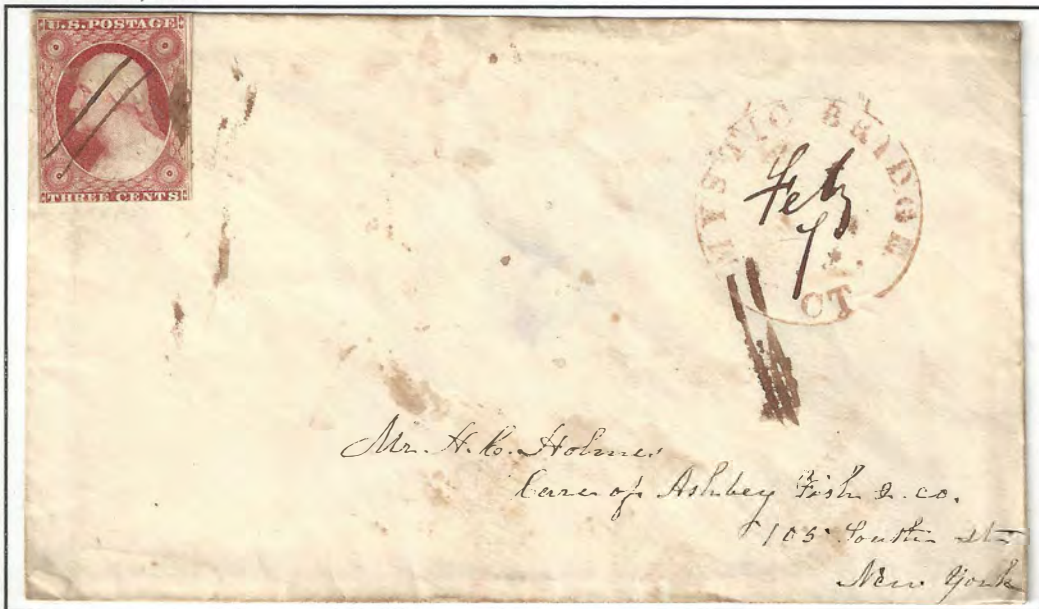 U.S. POSTAGE
THREE CENTS
MYSTIC BRIDGE
Feb
7
CT
Mr. H. C. Holmes
Care of Ashbey Fish & co.
105 South st
New York